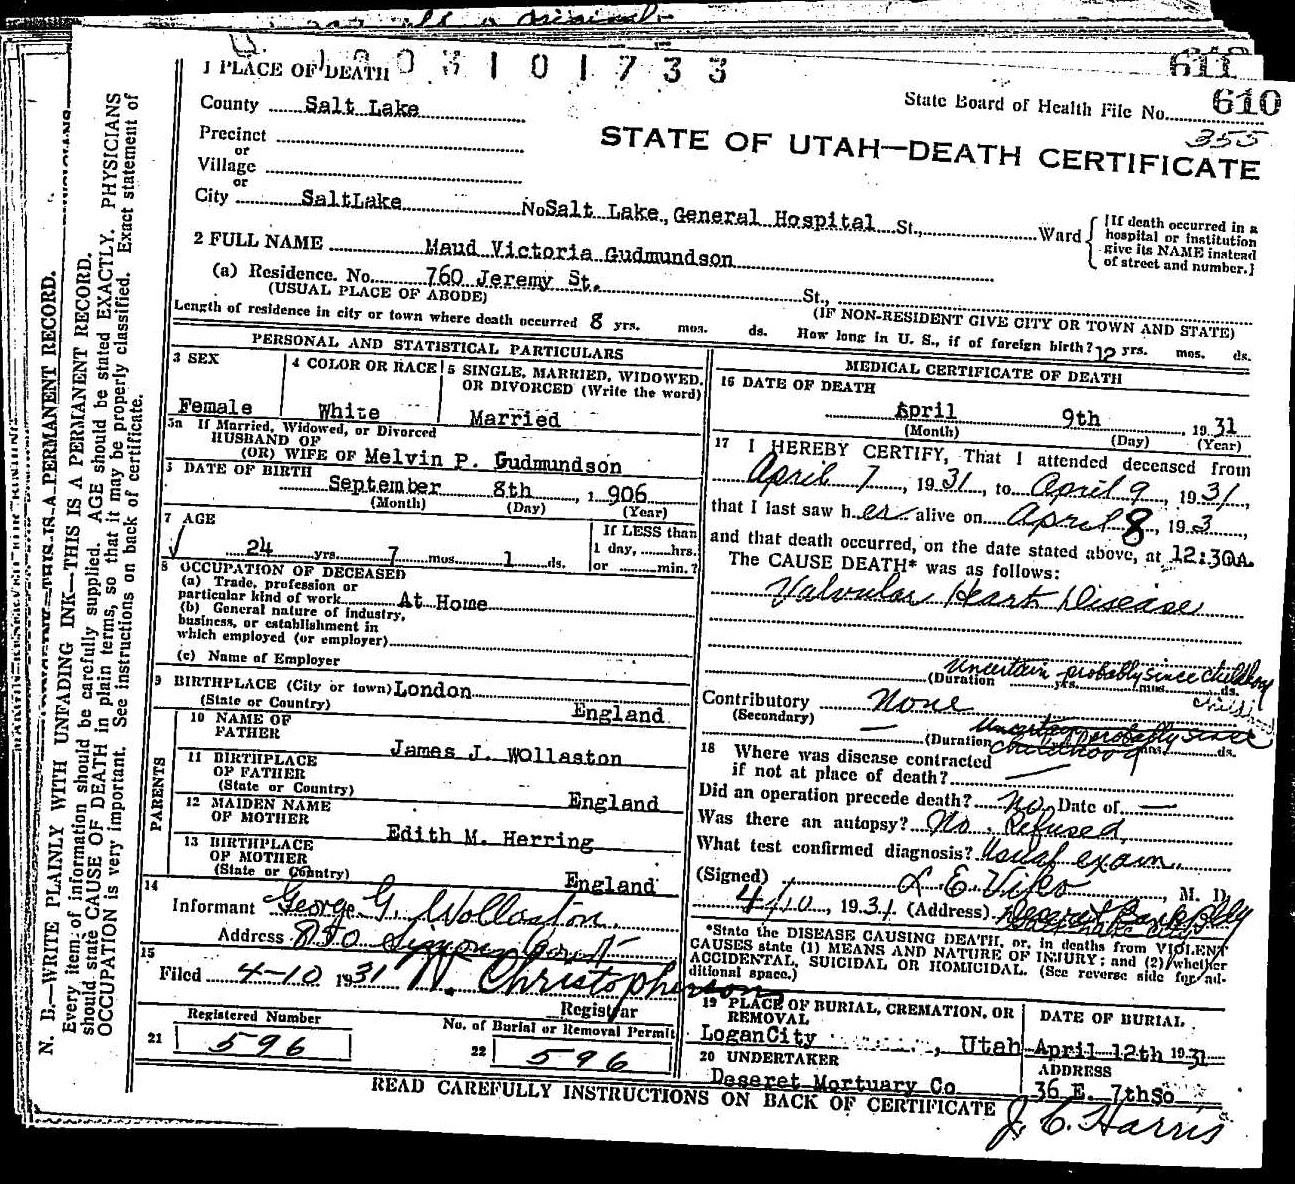 1003101733
611
1 PLACE OF DEATH
State Board of Health File No. 610
355
County Salt Lake
STATE OF UTAH—DEATH CERTIFICATE
Precinct
or
Village
or
City SaltLake No Salt Lake, General Hospital St., Ward
[If death occurred in a
hospital or institution
give its NAME instead
of street and number.]
2 FULL NAME Maud Victoria Gudmundson
(a) Residence. No. 760 Jeremy St. St.,
(USUAL PLACE OF ABODE) (IF NON-RESIDENT GIVE CITY OR TOWN AND STATE)
Length of residence in city or town where death occurred 8 yrs. mos. ds. How long in U. S., if of foreign birth? 12 yrs. mos. ds.
PERSONAL AND STATISTICAL PARTICULARS
3 SEX
Female
4 COLOR OR RACE
White
5 SINGLE, MARRIED, WIDOWED,
OR DIVORCED (Write the word)
Married
5a If Married, Widowed, or Divorced
HUSBAND OF
(OR) WIFE OF Melvin P. Gudmundson
DATE OF BIRTH
September 8th, 1906
(Month) (Day) (Year)
7 AGE
24 yrs. 7 mos. 1 ds.
If LESS than
1 day, hrs.
or min.?
8 OCCUPATION OF DECEASED
(a) Trade, profession or
particular kind of work At Home
(b) General nature of industry,
business, or establishment in
which employed (or employer)
(c) Name of Employer
9 BIRTHPLACE (City or town) London
(State or Country) England
PARENTS
10 NAME OF
FATHER James J. Wollaston
11 BIRTHPLACE
OF FATHER
(State or Country) England
12 MAIDEN NAME
OF MOTHER Edith M. Herring
13 BIRTHPLACE
OF MOTHER
(State or Country) England
14
Informant George G. Wollaston
Address Court
15
Filed 4-10 1931 W. Christopherson
Registrar
21 Registered Number
596
22 No. of Burial or Removal Permit
596
MEDICAL CERTIFICATE OF DEATH
16 DATE OF DEATH
April 9th, 1931
(Month) (Day) (Year)
17 I HEREBY CERTIFY, That I attended deceased from
April 7, 1931, to April 9, 1931,
that I last saw her alive on April 8, 193,
and that death occurred, on the date stated above, at 12:30A.
The CAUSE DEATH* was as follows:
Valvular Heart Disease
Uncertain probably since childhood
(Duration yrs. mos. ds.
Contributory None
(Secondary)
Uncertain probably since
(Duration childhood mos. ds.
18 Where was disease contracted
if not at place of death? —
Did an operation precede death? No Date of —
Was there an autopsy? No. Refused
What test confirmed diagnosis? Usual exam.
(Signed) L E Viko, M. D.
4/10, 1931 (Address) Deseret Bank Bldg
*State the DISEASE CAUSING DEATH, or, in deaths from VIOLENT
CAUSES state (1) MEANS AND NATURE OF INJURY; and (2) whether
ACCIDENTAL, SUICIDAL OR HOMICIDAL. (See reverse side for ad-
ditional space.)
19 PLACE OF BURIAL, CREMATION, OR
REMOVAL
LoganCity, Utah
DATE OF BURIAL
April 12th 1931
20 UNDERTAKER
Deseret Mortuary Co
ADDRESS
36 E. 7thSo
READ CAREFULLY INSTRUCTIONS ON BACK OF CERTIFICATE
J. C. Harris
N. B.—WRITE PLAINLY WITH UNFADING INK—THIS IS A PERMANENT RECORD.
Every item of information should be carefully supplied. AGE should be stated EXACTLY. PHYSICIANS
should state CAUSE OF DEATH in plain terms, so that it may be properly classified. Exact statement of
OCCUPATION is very important. See instructions on back of certificate.